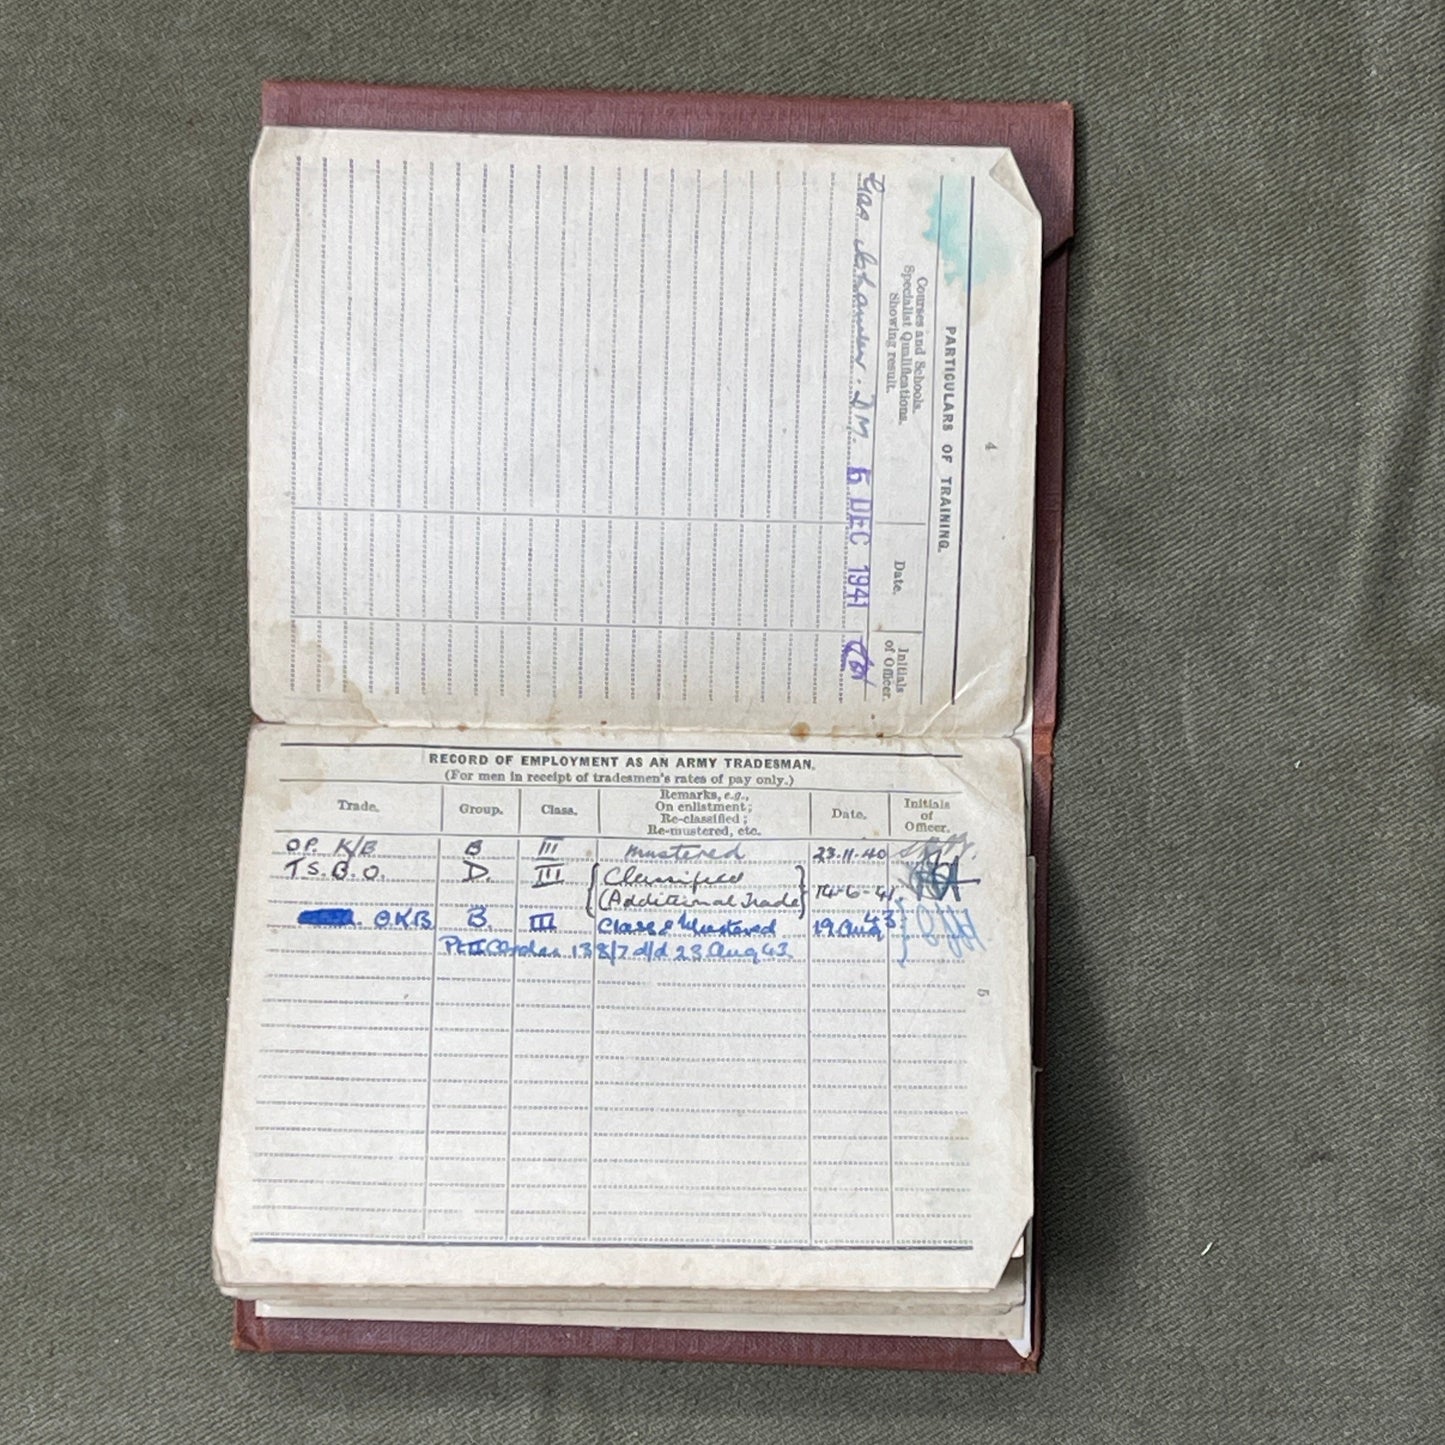 4
PARTICULARS OF TRAINING.
Courses and Schools.
Specialist Qualifications.
Showing result.
Date.
Initials
of Officer.
Gas Chamber. DM. 5 DEC 1941
RECORD OF EMPLOYMENT AS AN ARMY TRADESMAN.
(For men in receipt of tradesmen's rates of pay only.)
Trade. Group. Class. Remarks, e.g., On enlistment; Re-classified; Re-mustered, etc. Date. Initials of Officer.
OP. K/B B III Mustered 23.11.40
T.S.B.O. D. III (Classified
(Additional Trade) 14-6-41
O.K.B B. III Class & Mustered 19 Aug 43
Pt II Order 138/7 d/d 23 Aug 43.
5